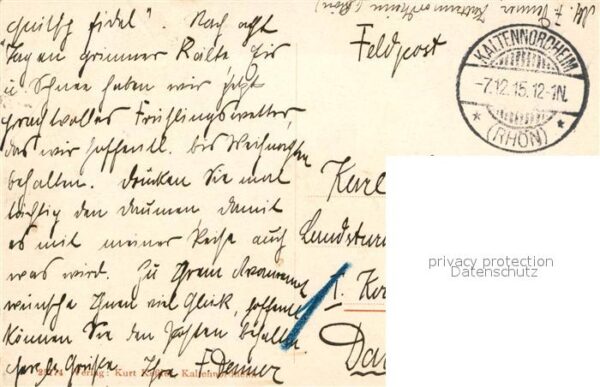 fidel". Nach acht
Tagen grimmer Kälte Eis
u Schnee haben wir jetzt
prachtvolles Frühlingswetter,
das wir hoffentl. bis Weihnachten
behalten. Drücken Sie mal
tüchtig den Daumen damit
es mit meiner Reise auch
was wird. Zu Ihrem
wünsche Ihnen viel Glück, hoffentl
können Sie den Posten behalten
Grüße Ihr F Denner
Kaltennordheim (Rhön)
Feldpost
KALTENNORDHEIM
-7.12.15.12-1N.
* (RHÖN) *
Karl
Landstur
1. Ko
Da
Verlag: Kurt
privacy protection
Datenschutz